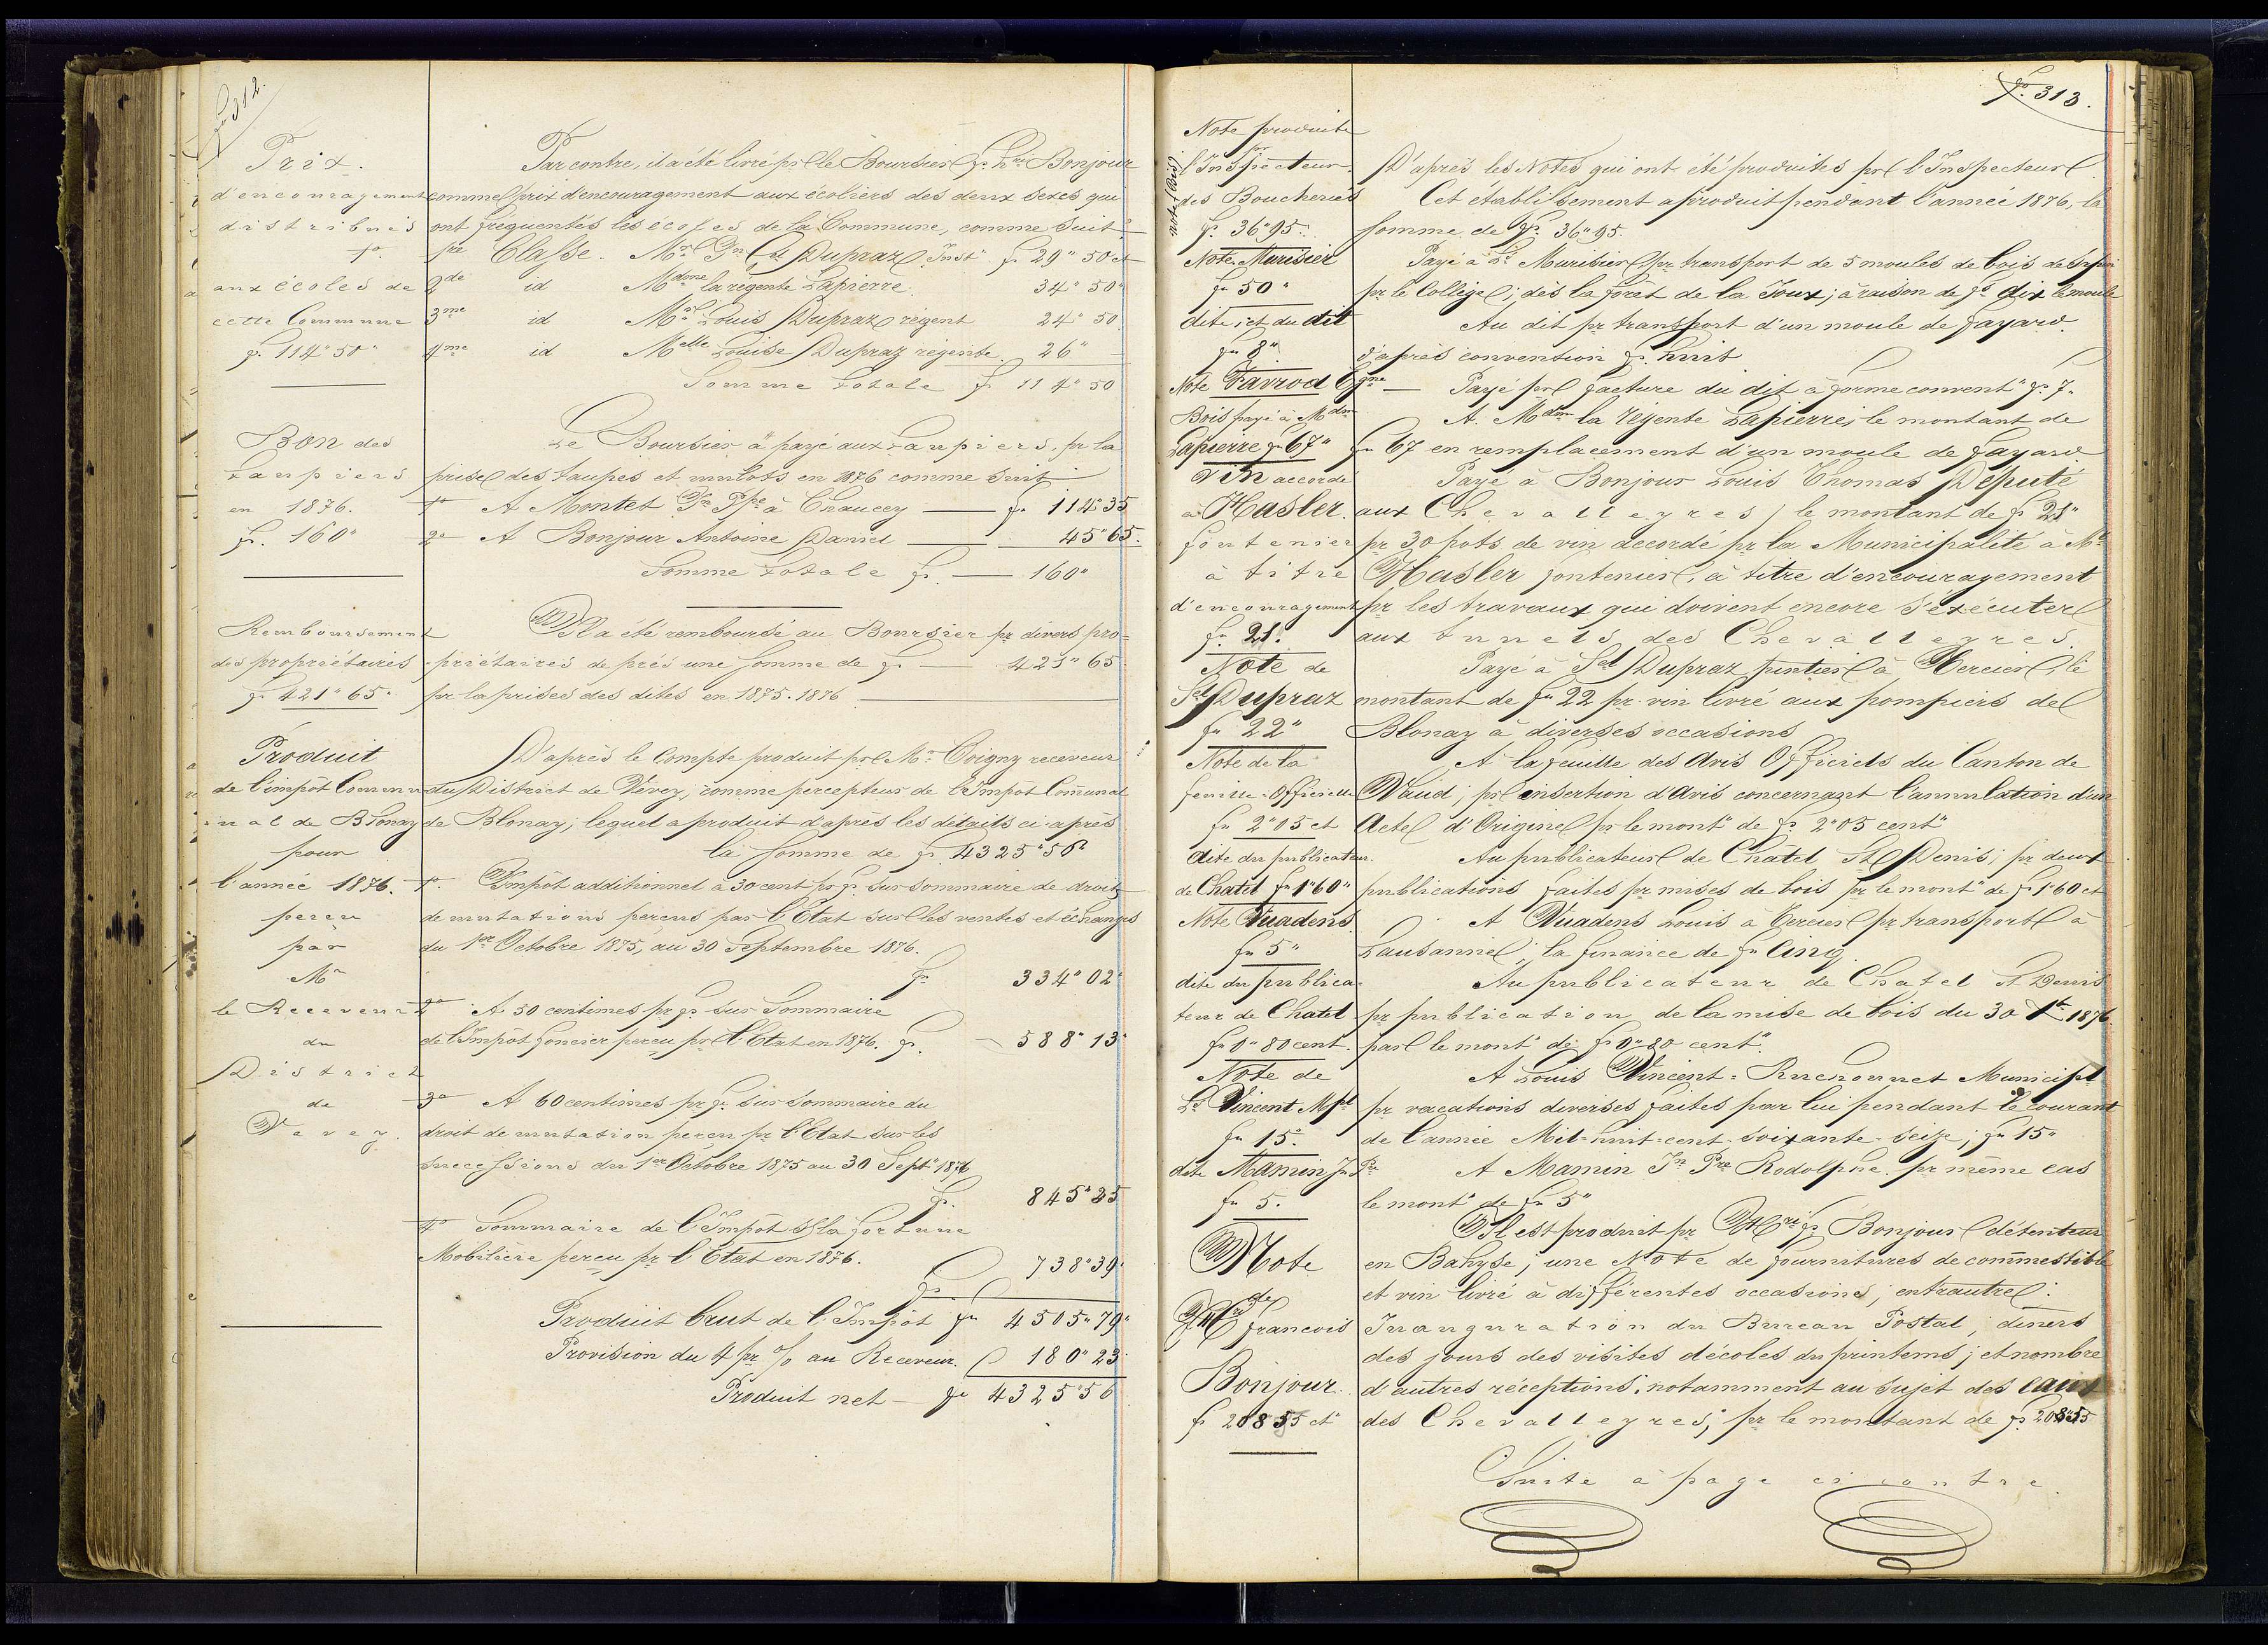 fo 312.
Prix
d'encouragement
distribués
pr
aux écoles de
cette Commune
fr. 114"50"
Par contre, il a été livré pr le Boursier fs. Hri Bonjour
comme prix d'encouragement aux écoliers des deux sexes qui
ont fréquentés les écoles de la Commune, comme suit:
pre Classe. Mr Dupraz. Inst fr 29" 50 ct
2de id Mdme la régente Lapierre 34" 50"
3me id Mr Louis Dupraz régent 24" 50
4me id Melle Louise Dupraz régente 26" –
Somme totale fr 114" 50
Bon des
taupiers
en 1876.
fr. 160"
Le Boursier a payé aux taupiers, pr la
prise des taupes et mulots en 1876 comme suit
1o A Montet à Chaucey — fr 114"35
2o A Bonjour Antoine Daniel — 45"65.
Somme totale fr. — 160"
Remboursement
des propriétaires
fr 421"65"
Il a été remboursé au Boursier pr divers pro=
=priétaires de prés une somme de fr — 421"65
pr la prises des dites en 1875.1876
Produit
de l'impôt Commu
nal de Blonay
pour
l'année 1876.
perçu
par
Mr
le Receveur
du
District
de
Vevey.
D'après le Compte produit pr Mr Coigny receveur
du District de Vevey, comme percepteur de l'Impôt Communal
de Blonay; lequel a produit d'après les détails ci-après
la somme de fr. 4325"56"
1o. Impôt additionnel à 30 cent pr fr. sur sommaire de droits
de mutations perçus par l'Etat sur les ventes et échanges
du 1er Octobre 1875, au 30 Septembre 1876.
fr 334"02"
2o A 50 centimes pr fr. sur Sommaire
de l'Impôt foncier perçu pr l'Etat en 1876. fr. – 588"13"
3o A 60 centimes pr fr. sur sommaire du
droit de mutation perçu pr l'Etat sur les
successions du 1er Octobre 1875 au 30 Sept" 1876
fr. 845"25
4o Sommaire de l'Impôt s/ la fortune
Mobilière perçu pr l'Etat en 1876.
738"39"
Produit brut de l'Impôt fr 4505"79"
Provision du 4 pr % au Receveur. 180"23
Produit net — fr 4325"56
fo. 313.
Note produite
pr
l'Inspecteur
des Boucheries
fr. 36"95.
D'après les Notes qui ont été produites pr l'Inspecteur
Cet établissement a produit pendant l'année 1876, la
somme de fr. 36"95.
Note Murisier
fr 50"
Payé à Ls Murisier pr transport de 5 moules de bois de sapin
pr le Collège; dès la forêt de la Joux; à raison de fr dix le moule
dite; et du dit
fr 8"
Au dit pr transport d'un moule de fayard.
d'après convention fr. huit
Note Favrod
Payé pr facture du dit à forme convent" fr. 7.
Bois payé à Mdme
Lapierre fr 67"
A Mdme la régente Lapierre, le montant de
fr 67 en remplacement d'un moule de fayard
Vin accordé
à Hasler
fontenier
à titre
d'encouragement
fr 21.
Payé à Bonjour Louis Thomas Député
aux Chevalleyres; le montant de fr 21"
pr 30 pots de vin accordé pr la Municipalité à Mr
Hasler fontenier, à titre d'encouragement
pr les travaux qui doivent encore s'exécuter
aux tunnels des Chevalleyres.
Note de
Sel Dupraz
fr 22"
Payé à Sel Dupraz pintier à Tercier, le
montant de fr 22 pr vin livré aux pompiers de
Blonay à diverses occasions
Note de la
feuille Officielle
fr 2"05 ct
A la feuille des Avis Officiels du Canton de
Vaud; pr insertion d'Avis concernant l'annulation d'un
Acte d'Origine pr le mont" de fr. 2"05 cent"
dite du publicateur.
de Chatel fr 1"60"
Au publicateur de Châtel St Denis; pr deux
publications faites pr mises de bois pr le mont" de fr 1"60 ct
Note Vuadens
fr 5"
A Vuadens Louis à Tercier pr transport à
Lausanne; la finance de fr Cinq.
dite du publica=
teur de Chatel
fr 0"80 cent.
Au publicateur de Chatel St Denis
pr publication de la mise de bois du 30 1876
par le mont" de fr 0"80 cent".
Note de
Ls Vincent Mpl
fr 15.
A Louis Vincent=Ruchonnet Municipl
pr vacations diverses faites par lui pendant le courant
de l'année Mil-huit-cent-soixante-seize; fr 15"
dite Mamin
fr 5.
A Mamin Rodolphe. pr même cas
le mont" de fr 5"
Note
de
Hri francois
Bonjour.
fr 208"55 ct
Il est produit pr Hri fs Bonjour détenteur
en Bahyse; une Note de fournitures de commestible
et vin livré à différentes occasions, entrautre:
Inauguration du Bureau Postal, diners
des jours des visites d'écoles du printems; et nombre
d'autres réceptions; notamment au sujet des eaux
des Chevalleyres; pr le montant de fr. 208"55
Suite à page ci contre.